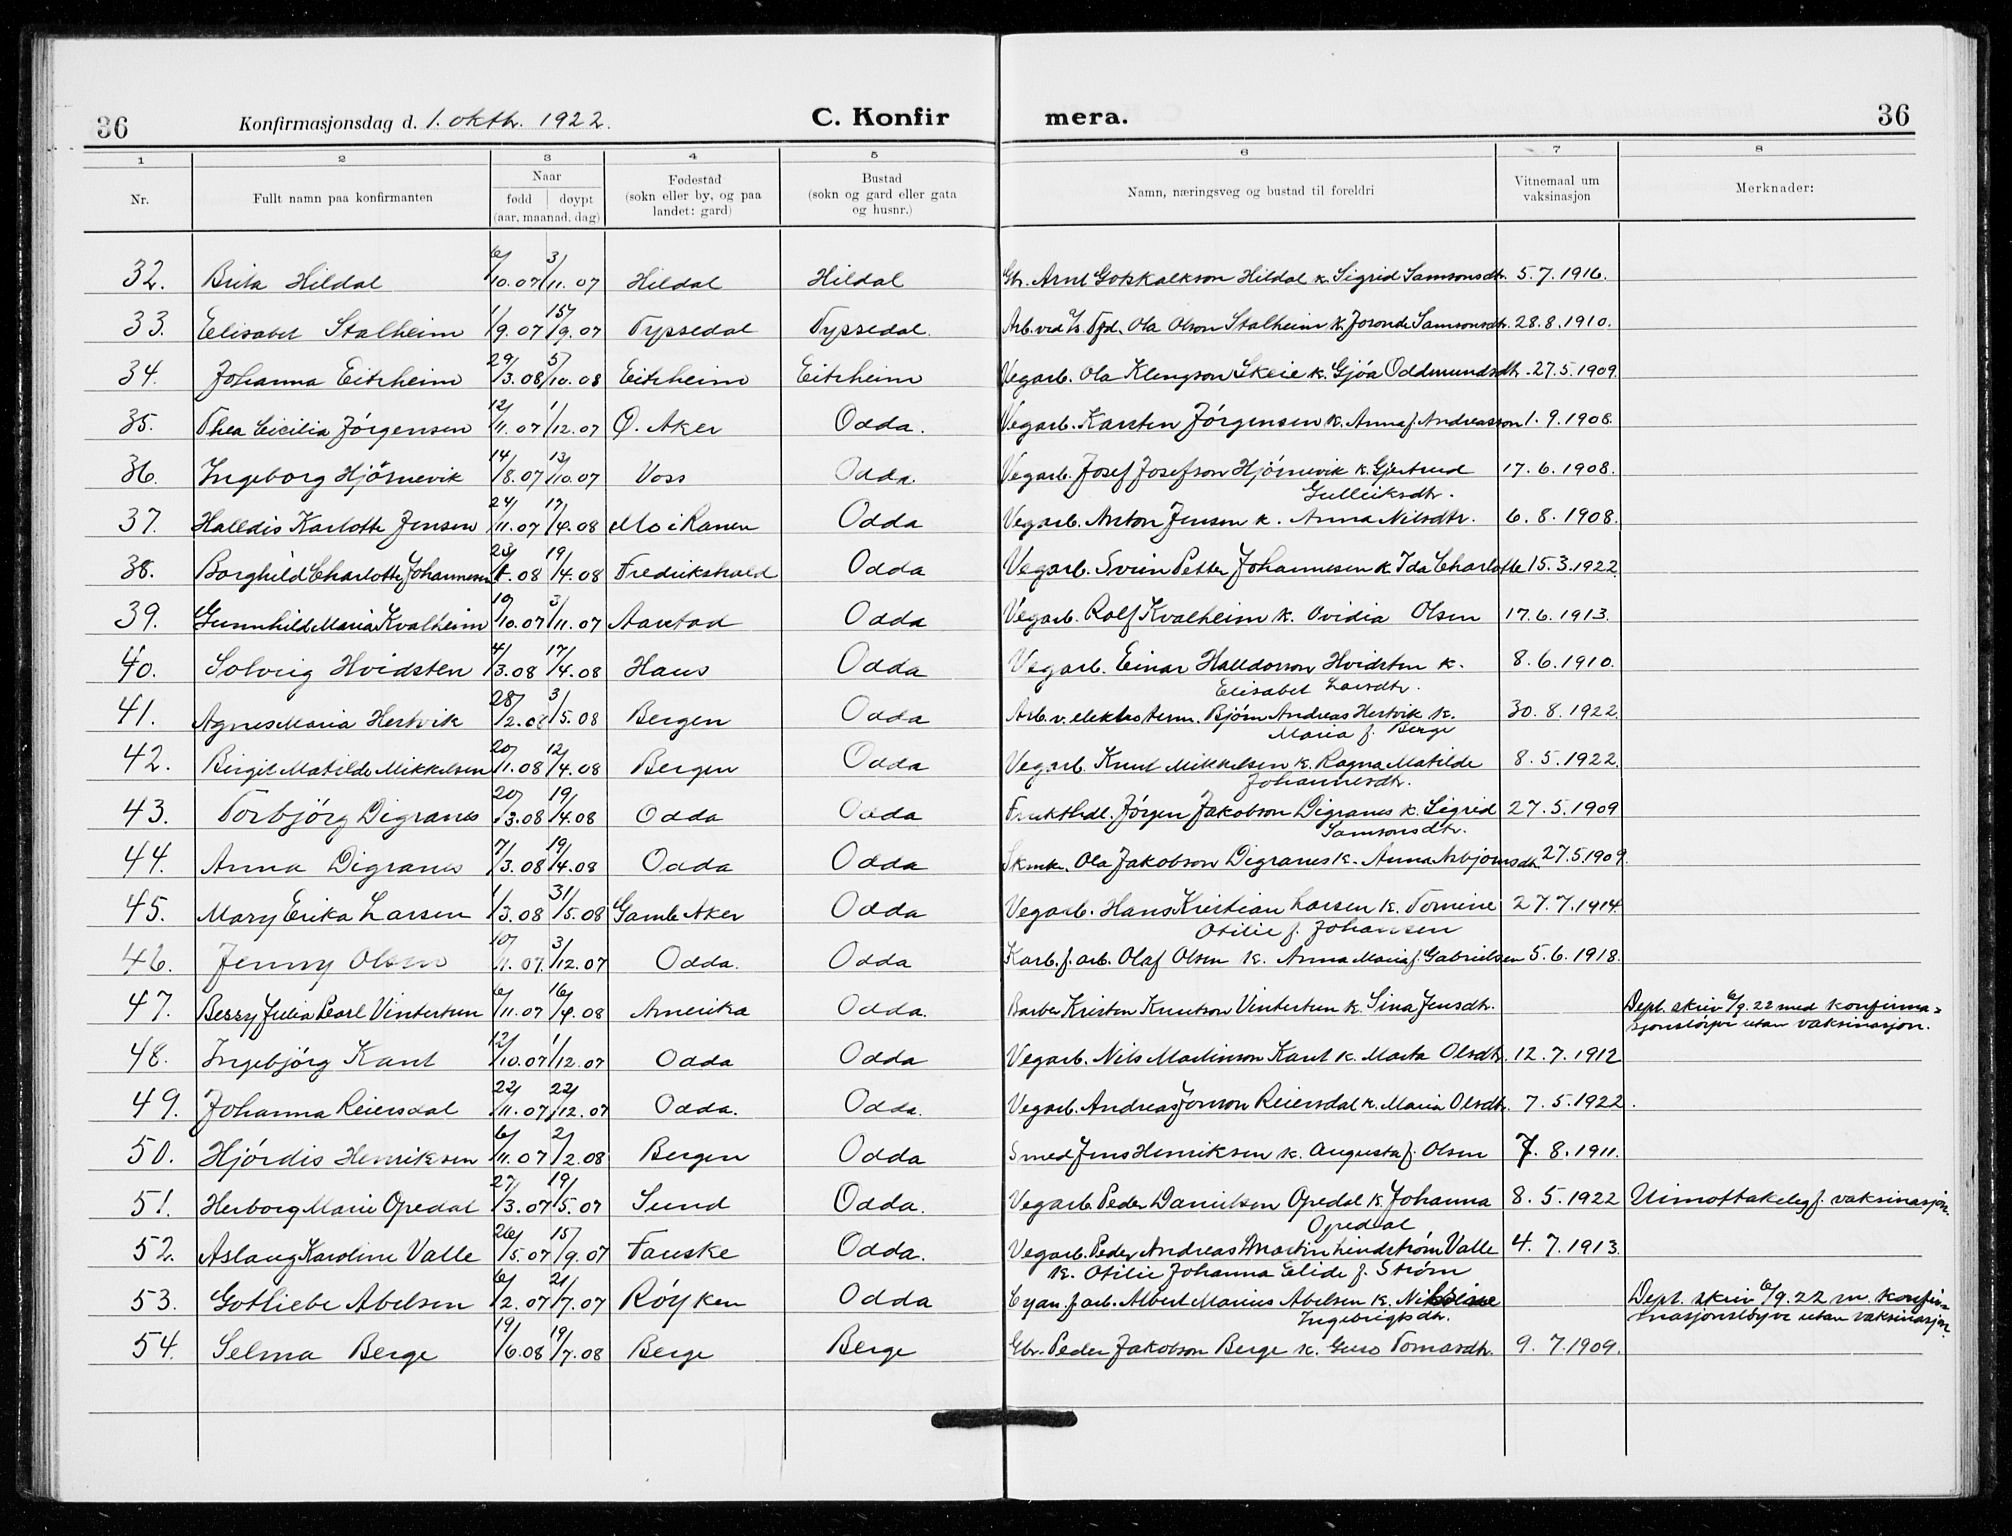 36 Konfirmasjonsdag d. 1. oktbr. 1922. C. Konfir mera. 36
1 2 3 4 5 6 7 8
Nr. Fullt namn paa konfirmanten Naar fødd døypt (aar, maanad, dag) Fødestad (sokn eller by, og paa landet: gard) Bustad (sokn og gard eller gata og husnr.) Namn, næringsveg og bustad til foreldri Vitnemaal um vaksinasjon Merknader:
32. Brita Hildal 6/10.07 3/11.07 Hildal Hildal Gbr. Arne Gotskalkson Hildal k. Sigrid Samsonsdtr. 5.7.1916.
33. Elisabet Stalheim 1/9.07 15/9.07 Tyssedal Tyssedal. Arb. ved Ola Olson Stalheim k. Joronde Samsonsdtr. 28.8.1910.
34. Johanna Eitrheim 29/3.08 5/10.08 Eitrheim Eitrheim Vegarb. Ola Klengson Skeie k. Gjøa Oddmundsdtr. 27.5.1909.
35. Thea Cicilia Jørgensen 12/11.07 1/12.07 Ø. Aker Odda. Vegarb. Karsten Jørgensen k. Anna f. Andreasson 1.9.1908.
36. Ingeborg Hjørnevik 14/8.07 13/10.07 Voss Odda. Vegarb. Josef Josefson Hjørnevik k. Gjertrud
Gulleiksdtr. 17.6.1908.
37. Halldis Karlotte Jensen 24/11.07 17/4.08 Mo i Ranen Odda Vegarb. Anton Jensen k. Anna Nilsdtr. 6.8.1908.
38. Borghild Charlotte Johannesen 23/1.08 19/4.08 Fredrikshald Odda Vegarb. Svein Petter Johannesen k. Ida Charlotte 15.3.1922.
39. Gunnhild Maria Kvalheim 10/10.07 3/11.07 Aarstad Odda Vegarb. Rolf Kvalheim k. Ovidia Olsen 17.6.1913.
40. Solveig Hvidsten 4/3.08 17/4.08 Haus Odda Vegarb. Einar Halldorson Hvidsten k.
Elisabet Larsdtr. 8.6.1910.
41. Agnes Maria Hertvik 28/2.08 3/5.08 Bergen Odda Arb. v. elektosterm. Bjørn Andreas Hertvik k.
Maria f. Berge 30.8.1922.
42. Birgit Matilde Mikkelsen 20/1.08 12/4.08 Bergen Odda Vegarb. Knut Mikkelsen k. Ragna Matilde
Johannesdtr. 8.5.1922.
43. Torbjørg Digranes 20/3.08 19/4.08 Odda Odda Frukthdl. Jørgen Jakobson Digranes k. Sigrid
Samsonsdtr. 27.5.1909
44. Anna Digranes 7/3.08 19/4.08 Odda Odda Skmk. Ola Jakobson Digranes k. Anna Asbjørnsdtr. 27.5.1909.
45. Mary Erika Larsen 1/3.08 31/5.08 Gamle Aker Odda Vegarb. Hans Kristian Larsen k. Tomine
Otilie f. Johansen 27.7.1914.
46. Jenny Olsen 10/1.07. 3/12.07 Odda. Odda Karb. f. arb. Olaf Olsen k. Anna Maria f. Gabrielsen 5.6.1918.
47. Bessy Julia Pearl Vintertun 6/11.07 16/4.08 Amerika Odda. Barber Kristen Knutson Vintertun k. Sina Jensdtr. Dept. skriv 6/9.22 med konfirma-
sjonsløyve utan vaksinasjon.
48. Ingebjørg Kant 12/10.07 1/12.07 Odda Odda Vegarb. Nils Martinson Kant k. Marta Olsdtr. 12.7.1912
49. Johanna Reiersdal 22/11.07 22/12.07 Odda. Odda. Vegarb. Andreas Jonson Reiersdal k. Maria Olsdtr. 7.5.1922.
50. Hjørdis Henriksen 6/11.07 2/2.08 Bergen Odda Smed Jens Henriksen k. Augusta f. Olsen 7.8.1911.
51. Herborg Marie Opedal 27/3.07 19/5.07 Sund Odda. Vegarb. Peder Danielson Opedal k. Johanna
Opedal 8.5.1922 Uimottakeleg f. vaksinasjon.
52. Aslaug Karoline Valle 26/5.07 15/9.07 Fauske Odda. Vegarb. Peder Andreas Martin Lindstrøm Valle
k. Otilie Johanna Elide f. Strøm 4.7.1913.
53. Gotliebe Abelsen 6/2.07 21/7.07 Røyken Odda Cyan. f. arb. Albert Marius Abelsen k. Nikoline
Ingebrigtsdtr. Dept. skriv 6/9.22 m konfir-
masjonsløyve utan vaksinasjon.
54. Selma Berge 19/6.08 19/7.08 Berge Berge Gbr. Peder Jakobson Berge k. Guro Tomasdtr. 9.7.1909.